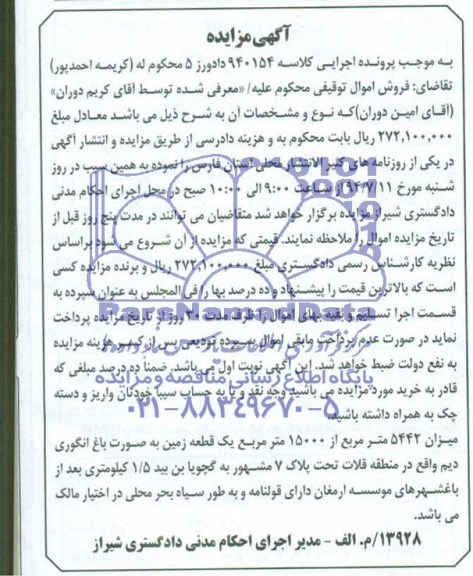 آگهی مزایده
به موجب پرونده اجرایی کلاسه ۹۴۰۱۵۴ دادورز ۵ محکوم له (کریمه احمدپور)
تقاضای: فروش اموال توقیفی محکوم علیه/ «معرفی شده توسط آقای کریم دوران»
(آقای امین دوران) که نوع و مشخصات آن به شرح ذیل می باشد معادل مبلغ
۲۷۲,۱۰۰,۰۰۰ ریال بابت محکوم به و هزینه دادرسی از طریق مزایده و انتشار آگهی
در یکی از روزنامه های کثیر الانتشار محلی استان فارس را نموده به همین سبب در روز
شنبه مورخ ۹۴/۷/۱۱ از ساعت ۹:۰۰ الی ۱۰:۰۰ صبح در محل اجرای احکام مدنی
دادگستری شیراز مزایده برگزار خواهد شد متقاضیان می توانند در مدت پنج روز قبل از
تاریخ مزایده اموال را ملاحظه نمایند. قیمتی که مزایده از آن شروع می شود براساس
نظریه کارشناس رسمی دادگستری مبلغ ۲۷۲,۱۰۰,۰۰۰ ریال و برنده مزایده کسی
است که بالاترین قیمت را پیشنهاد و ده درصد بها را فی المجلس به عنوان سپرده به
قسمت اجرا تسلیم و بقیه بهای اموال را ظرف مدت ۳۰ روز از تاریخ مزایده پرداخت
نماید در صورت عدم پرداخت مابقی اموال سپرده تودیعی پس از کسر هزینه مزایده
به نفع دولت ضبط خواهد شد. این آگهی نوبت اول می باشد. ضمنا ده درصد مبلغی که
قادر به خرید مورد مزایده می باشید وجه نقد و یا به حساب سیبا خودتان واریز و دسته
چک به همراه داشته باشید.
میزان ۵۴۴۲ متر مربع از ۱۵۰۰۰ متر مربع یک قطعه زمین به صورت باغ انگوری
دیم واقع در منطقه قلات تحت پلاک ۷ مشهور به گچویا بن بید ۱/۵ کیلومتری بعد از
باغشهرهای موسسه ارمغان دارای قولنامه و به طور سیاه بحر محلی در اختیار مالک
می باشد.
۱۳۹۲۸/م. الف - مدیر اجرای احکام مدنی دادگستری شیراز
ParsNamadData
پایگاه اطلاع رسانی مناقصه و مزایده
۰۲۱-۸۸۳۴۹۶۷۰-۵